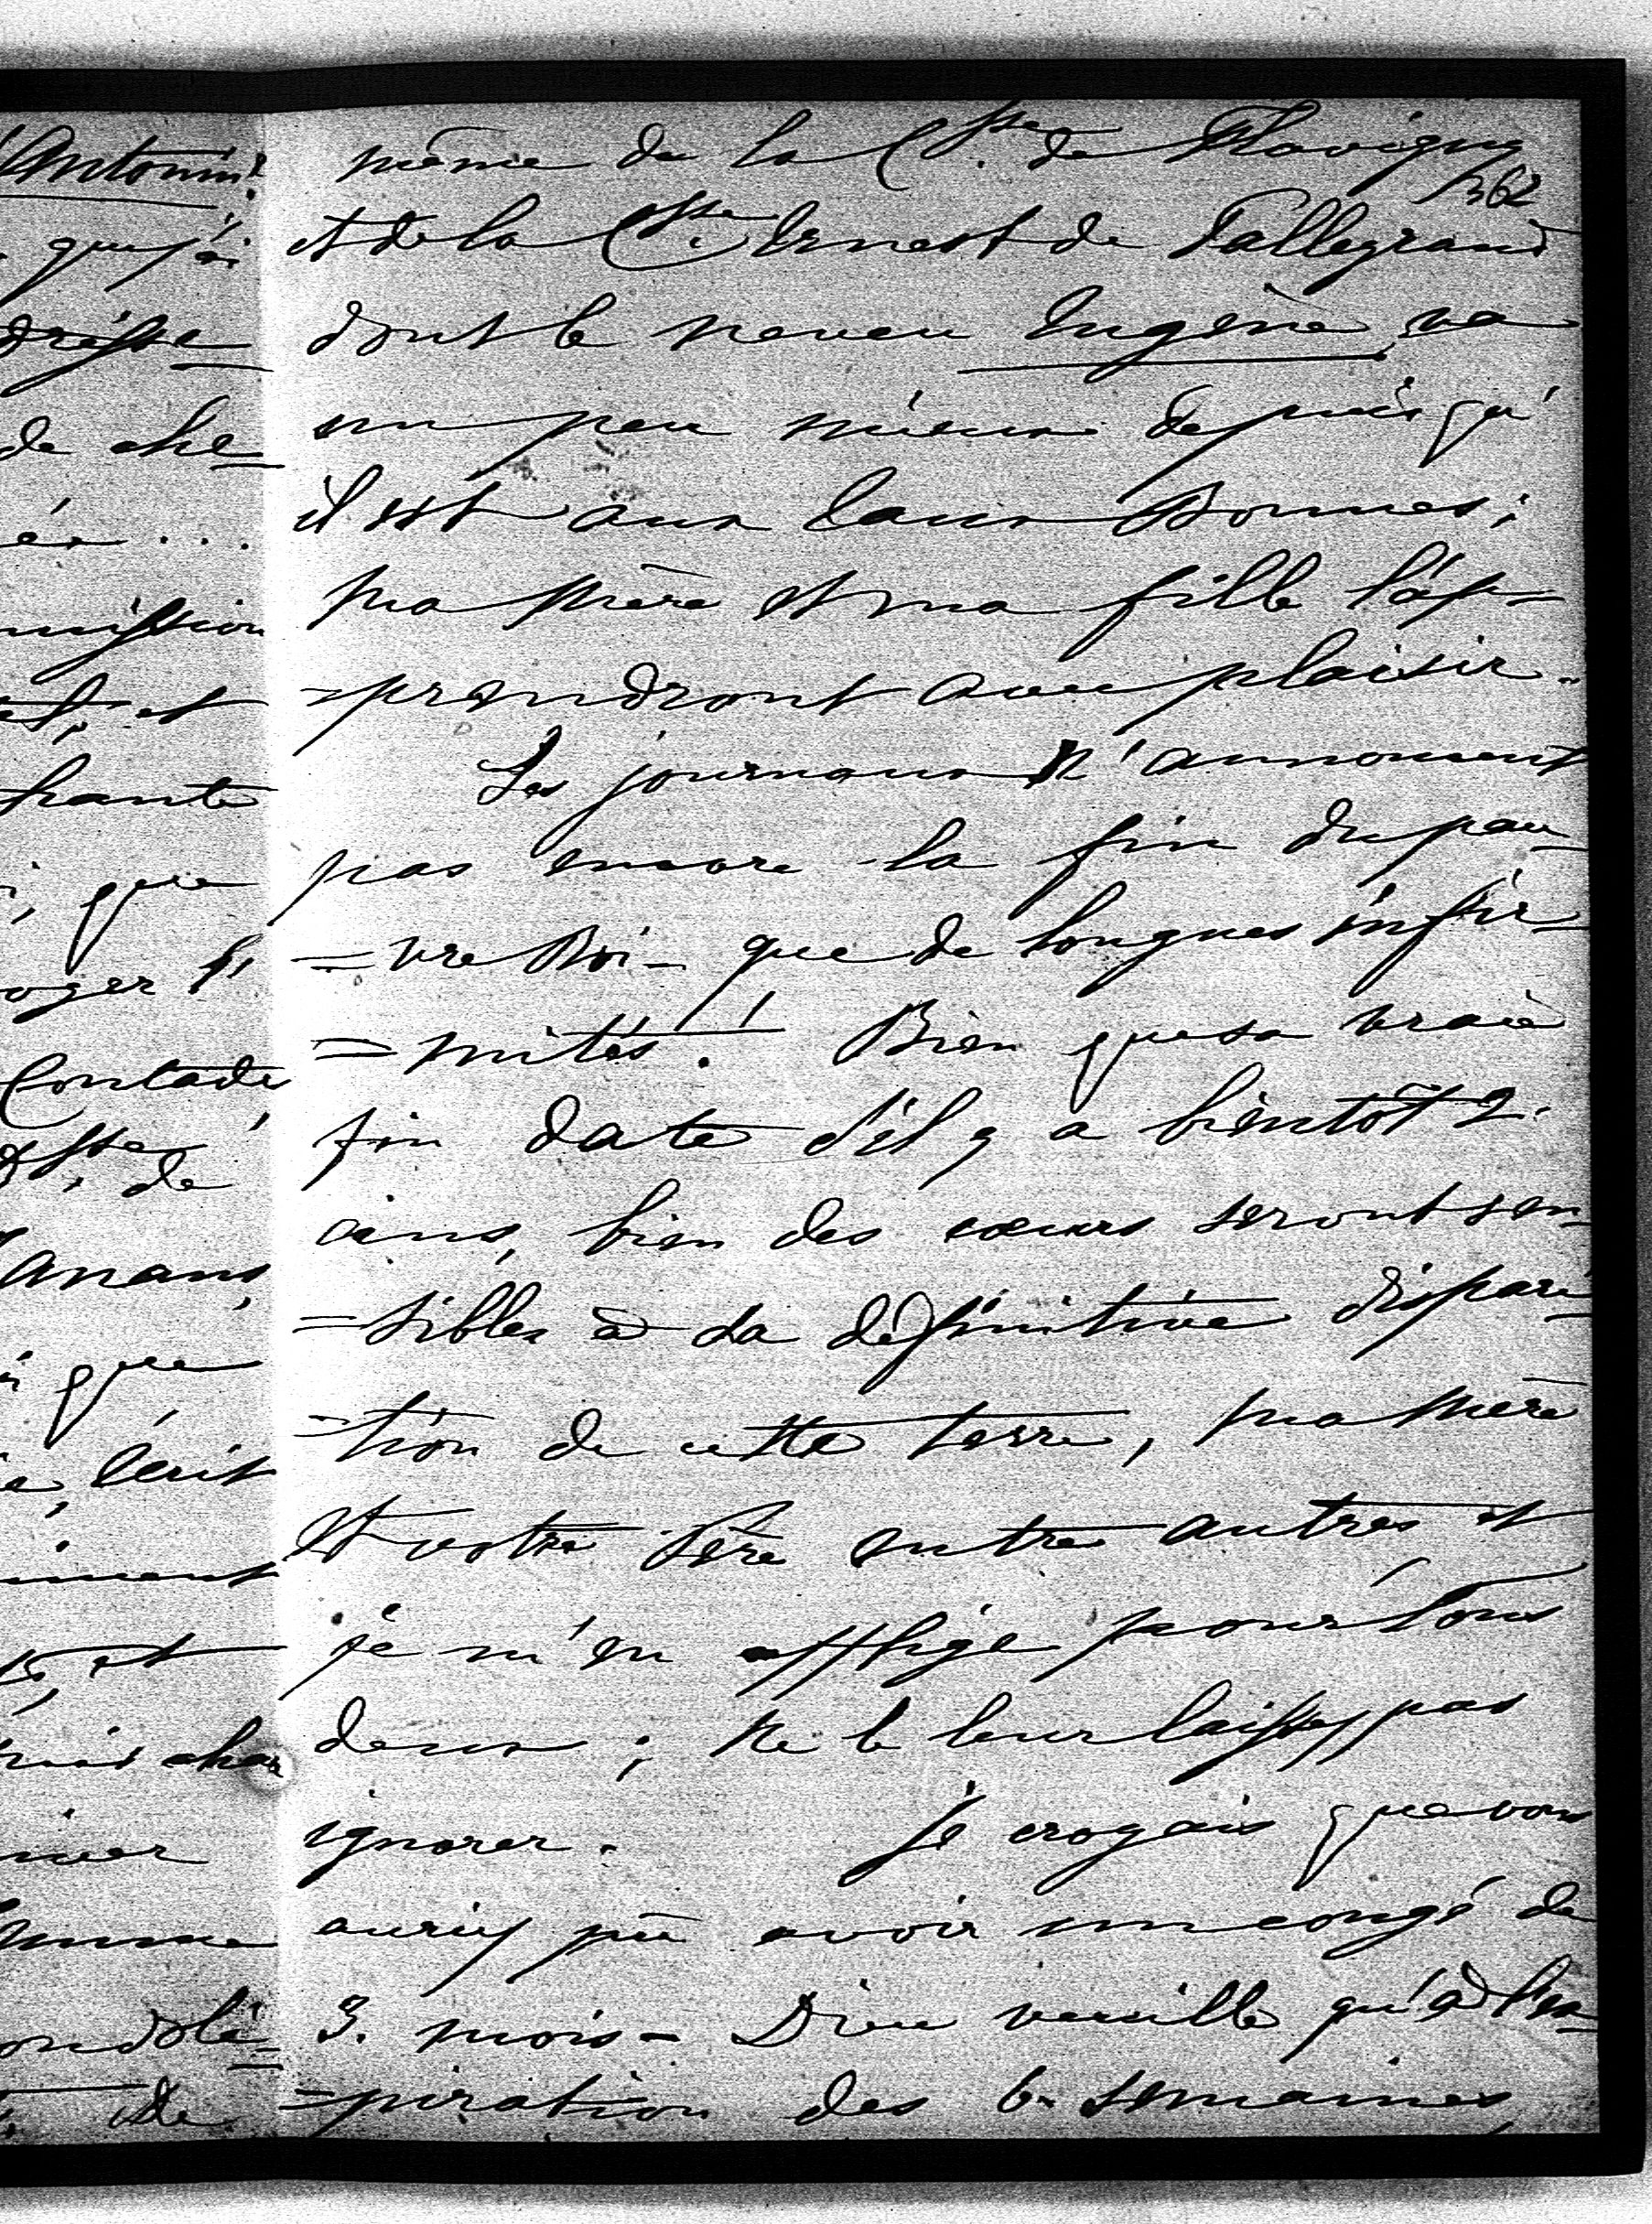 même de la Csse. de Flavigny
362
et de la Csse. Ernest de Talleyrand
dont le neveu Eugène, va
un peu mieux depuis qu'
il est aux Eaux Bonnes ;
ma mère et ma fille l'ap-
=prendront avec plaisir.
Les journaux n'annoncent
pas encore la fin du pau-
=vre Roi - que de longues infir-
=mités ! Bien que sa vraie
fin date d'il y a bientôt 2.
ans, bien des cœurs seront sen-
=sibles à sa définitive dispari-
=tion de cette terre, ma mère
et votre Père entre autres et
je m'en afflige pour tous
deux ; ne le leur laissez pas
ignorer. Je croyais que vous
auriez pû avoir un congé de
3. mois - Dieu veuille qu'à l'ex-
=piration des 6. semaines,
Antonin
que j'ai
de che=
...
mission
et
hante
, que
oger
Contades
de
que
, écrit
et